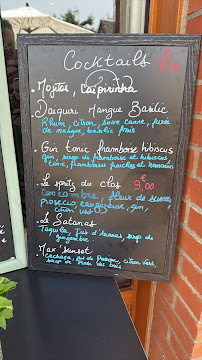 Cocktails
. Mojitos, Caïpirinha
. Daïquiri Mangue Basilic
Rhum, citron, sucre canne, purée
de mangue, basilic frais
. Gin tonic framboise hibiscus
gin, sirop de framboise et hibiscus
tonic, framboises fraîches et romarin
. Le spritz du clos 9,00
Concombre, fleur de sureau,
prosecco, eau gazeuse, gin,
citron vert
. Le Satanas
Tequila, jus d'ananas, sirop de
gingembre
. Max'sunset
Cachaça, jus de mangue, citron vert,
sirop de fruits des bois